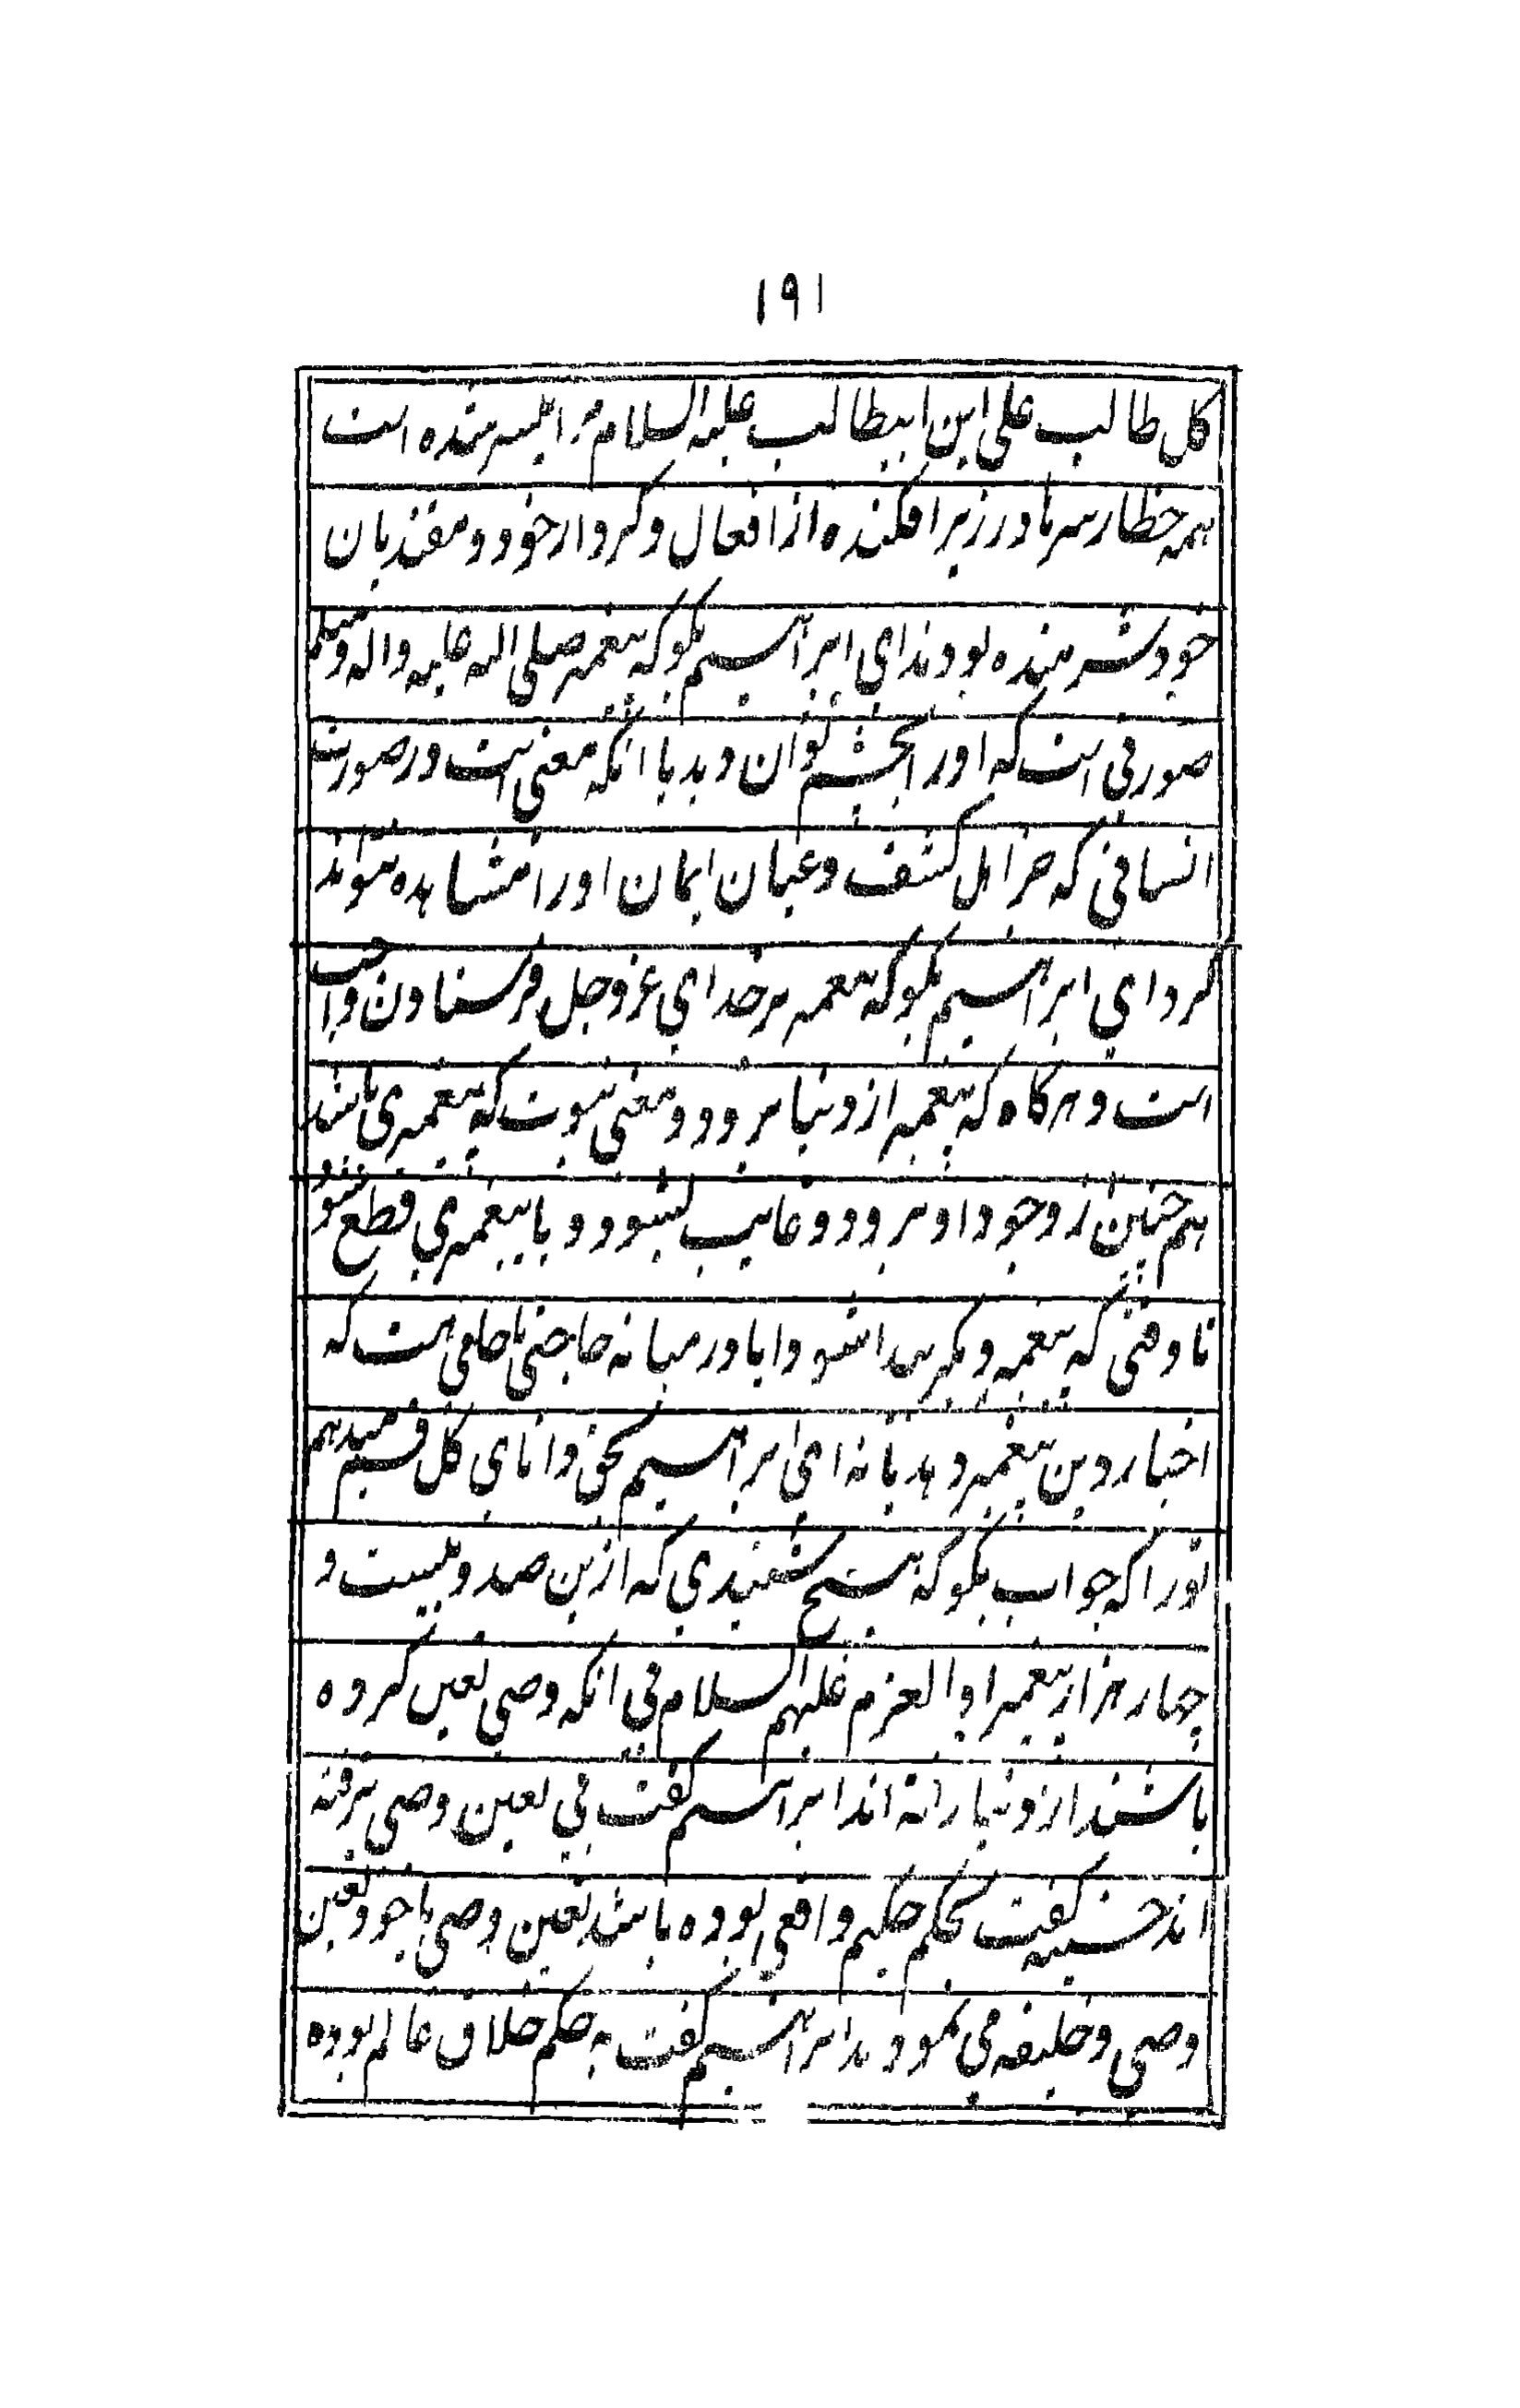 ۱۹۱
کل طالب علی ابن ابیطالب علیه السلام است
همه حظار سرها در زیر افکنده از افعال و کردار خود و مفتیان
خود شرمنده بودند ای ابراهیم بگو که پیغمبر صلی الله علیه و اله وسلم
صورتی است که اورا بچشم توان دید یا انکه معنی است در صورت
انسانی که جز اهل کشف و عیان ایمان اورا مشاهده نتواند
کرد ای ابراهیم بگو که پیغمبر بر خدای عزوجل فرستادن واجب
است و هرگاه که پیغمبر از دنیا برود و معنی نبوت که پیغمبری باشد
هم چنین از وجود او برود و غایب بشود و یا پیغمبری قطع شود
تا وقتی که پیغمبر دیگر پیدا شود و ایا در میانه حاجتی بامامی هست که
اخبار دین پیغمبر دهد یا نه ای ابراهیم بحق دانای کل قسم میدهم
تورا که جواب بگو که هیچ شنیدی که ازین صد و بیست و
چهار هزار پیغمبر اولوالعزم علیهم السلام بی انکه وصی تعین کرده
باشند از دنیا رفته اند ابراهیم گفت بی تعین وصی نرفته
اند حسنیه گفت بحکم حکیم واقعی بوده باشد تعین وصی یا خود تعین
وصی و خلیفه می نمودند ابراهیم گفت به حکم خلاق عالم بوده